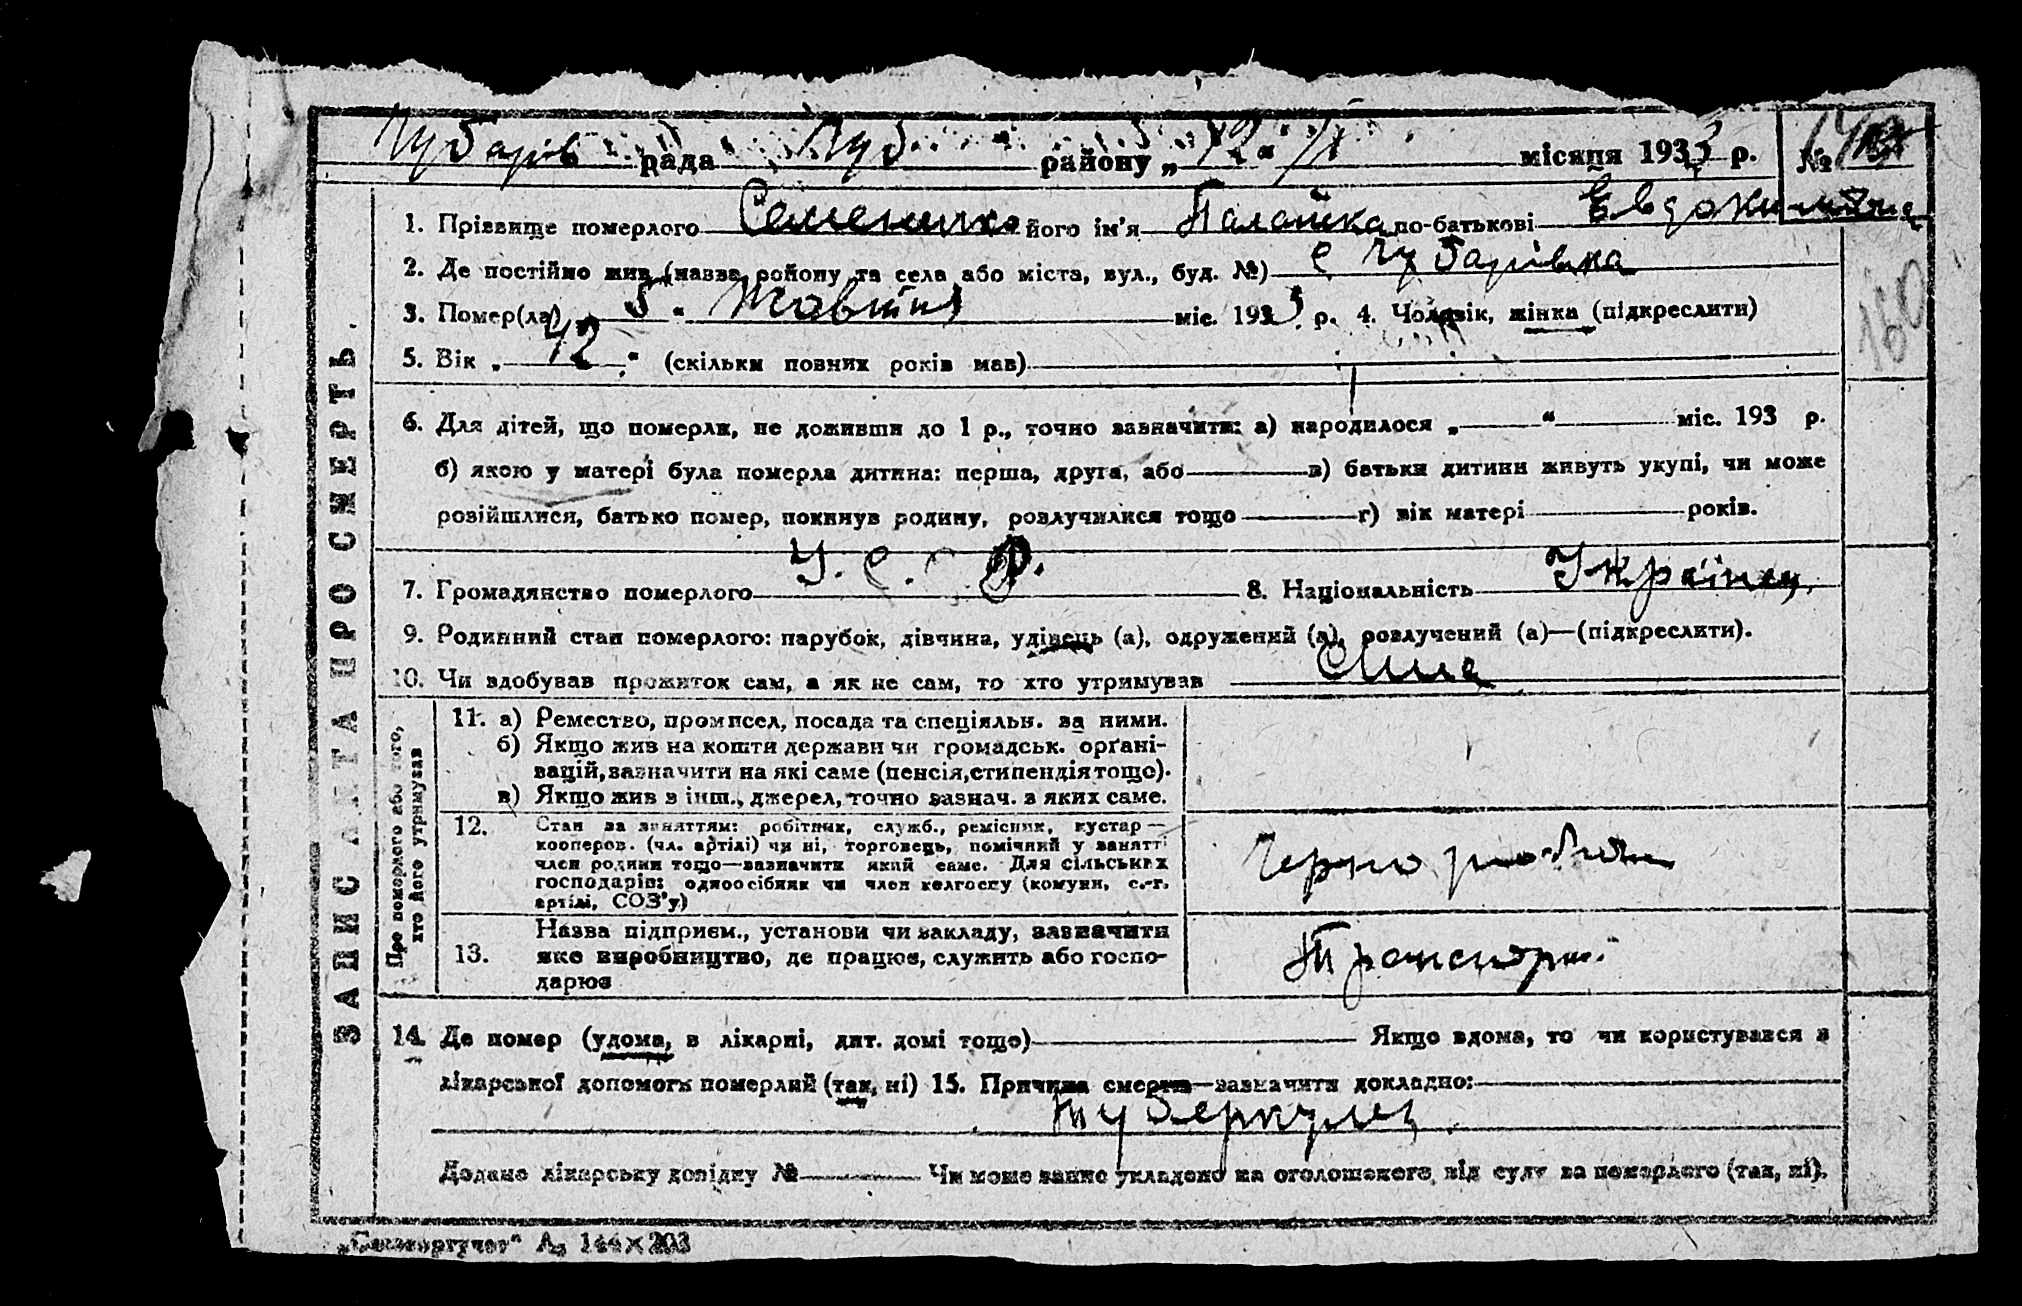 Чубарів рада Чуб. району „12“ XI місяця 1933 р. №
1. Прізвище померлого Семенико його ім'я Палашка по-батькові Евдокимівна
2. Де постійно жив (назва району та села або міста, вул., буд. №) с Чубарівка
3. Помер(ла) „5“ Жовтня міс. 1933 р. 4. Чоловік, жінка (підкреслити)
160
5. Вік „42“ (скільки повних років мав)
6. Для дітей, що померли, не доживши до 1 р., точно зазначити: а) народилося „ “ міс. 193 р.
б) якою у матері була померла дитина: перша, друга, або в) батьки дитини живуть укупі, чи може
розійшлися, батько помер, покинув родину, розлучилися тощо г) вік матері років.
7. Громадянство померлого У. С. Р. 8. Національність Українц.
9. Родинний стан померлого: парубок, дівчина, удівець (а), одружений (а), розлучений (а)—(підкреслити).
10. Чи здобував прожиток сам, а як не сам, то хто утримував Сама
ЗАПИС АКТА ПРО СМЕРТЬ.
Про померлого або того,
хто його утримував
11. а) Ремество, промисел, посада та спеціяльн. за ними.
б) Якщо жив на кошти держави чи громадськ. орґані-
зацій, зазначити на які саме (пенсія, стипендія тощо).
в) Якщо жив з інш., джерел, точно зазнач. з яких саме.
12. Стан за заняттям: робітник, служб., ремісник, кустар—
кооперов. (чл. артілі) чи ні, торговець, помічний у занятті
член родини тощо—зазначити який саме. Для сільських
господарів: одноосібник чи член колгоспу (комуни, с.-г.
артілі, СОЗ'у)
Чернороботч
13. Назва підприєм., установи чи закладу, зазначити
яке виробництво, де працює, служить або госпо-
дарює
Транспорт.
14. Де помер (удома, в лікарні, дит. домі тощо) Якщо вдома, то чи користувався з
лікарської допомоги померлий (так, ні) 15. Причина смерти—зазначити докладно:
туберкулец.
Додано лікарську довідку № Чи може запис укладено на оголошеного від суду за померлого (так, ні).
А₅ 144×203